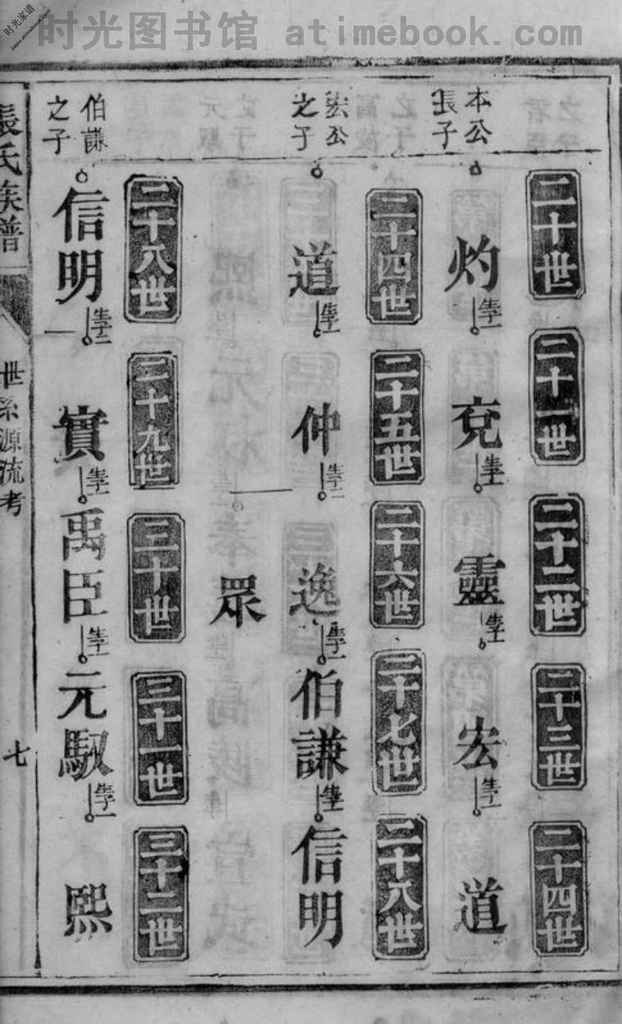 时光图书馆 atimebook.com
时光家谱
二十世
二十一世
二十二世
二十三世
二十四世
本公
長子
灼 生子一
兗 生子一
靈 生子一
宏 生子一
道
二十四世
二十五世
二十六世
二十七世
二十八世
宏公
之子
道 生子一
仲 生子二
逸 生子一
伯謙 生子一
信明
眾
二十八世
二十九世
三十世
三十一世
三十二世
伯謙
之子
信明 生子二
實 生子一
禹臣 生子一
元馭 生子一
熙
張氏族譜
世系源流考
七